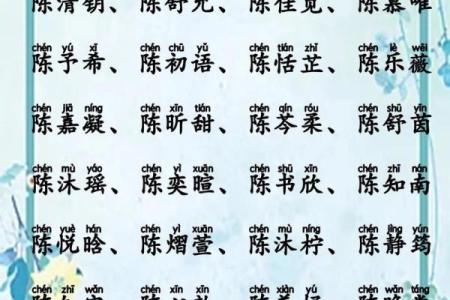 chén yú xī chén chū yǔ chén tián zhǐ chén lè wēi
陈予希、陈初语、陈恬芷、陈乐薇
chén jiā níng chén xīn tián chén qín róu chén shū yīn
陈嘉凝、陈昕甜、陈芩柔、陈舒茵
chén mù yáo chén yì xuān chén shū xīn chén zhī nán
陈沐瑶、陈奕暄、陈书欣、陈知南
chén yuè hán chén yì xuān chén mù níng chén jìng yún
陈悦晗、陈熠萱、陈沐柠、陈静筠
chén zhī wǎn chén xīn xīn chén xiàn yú chén wǎn táng